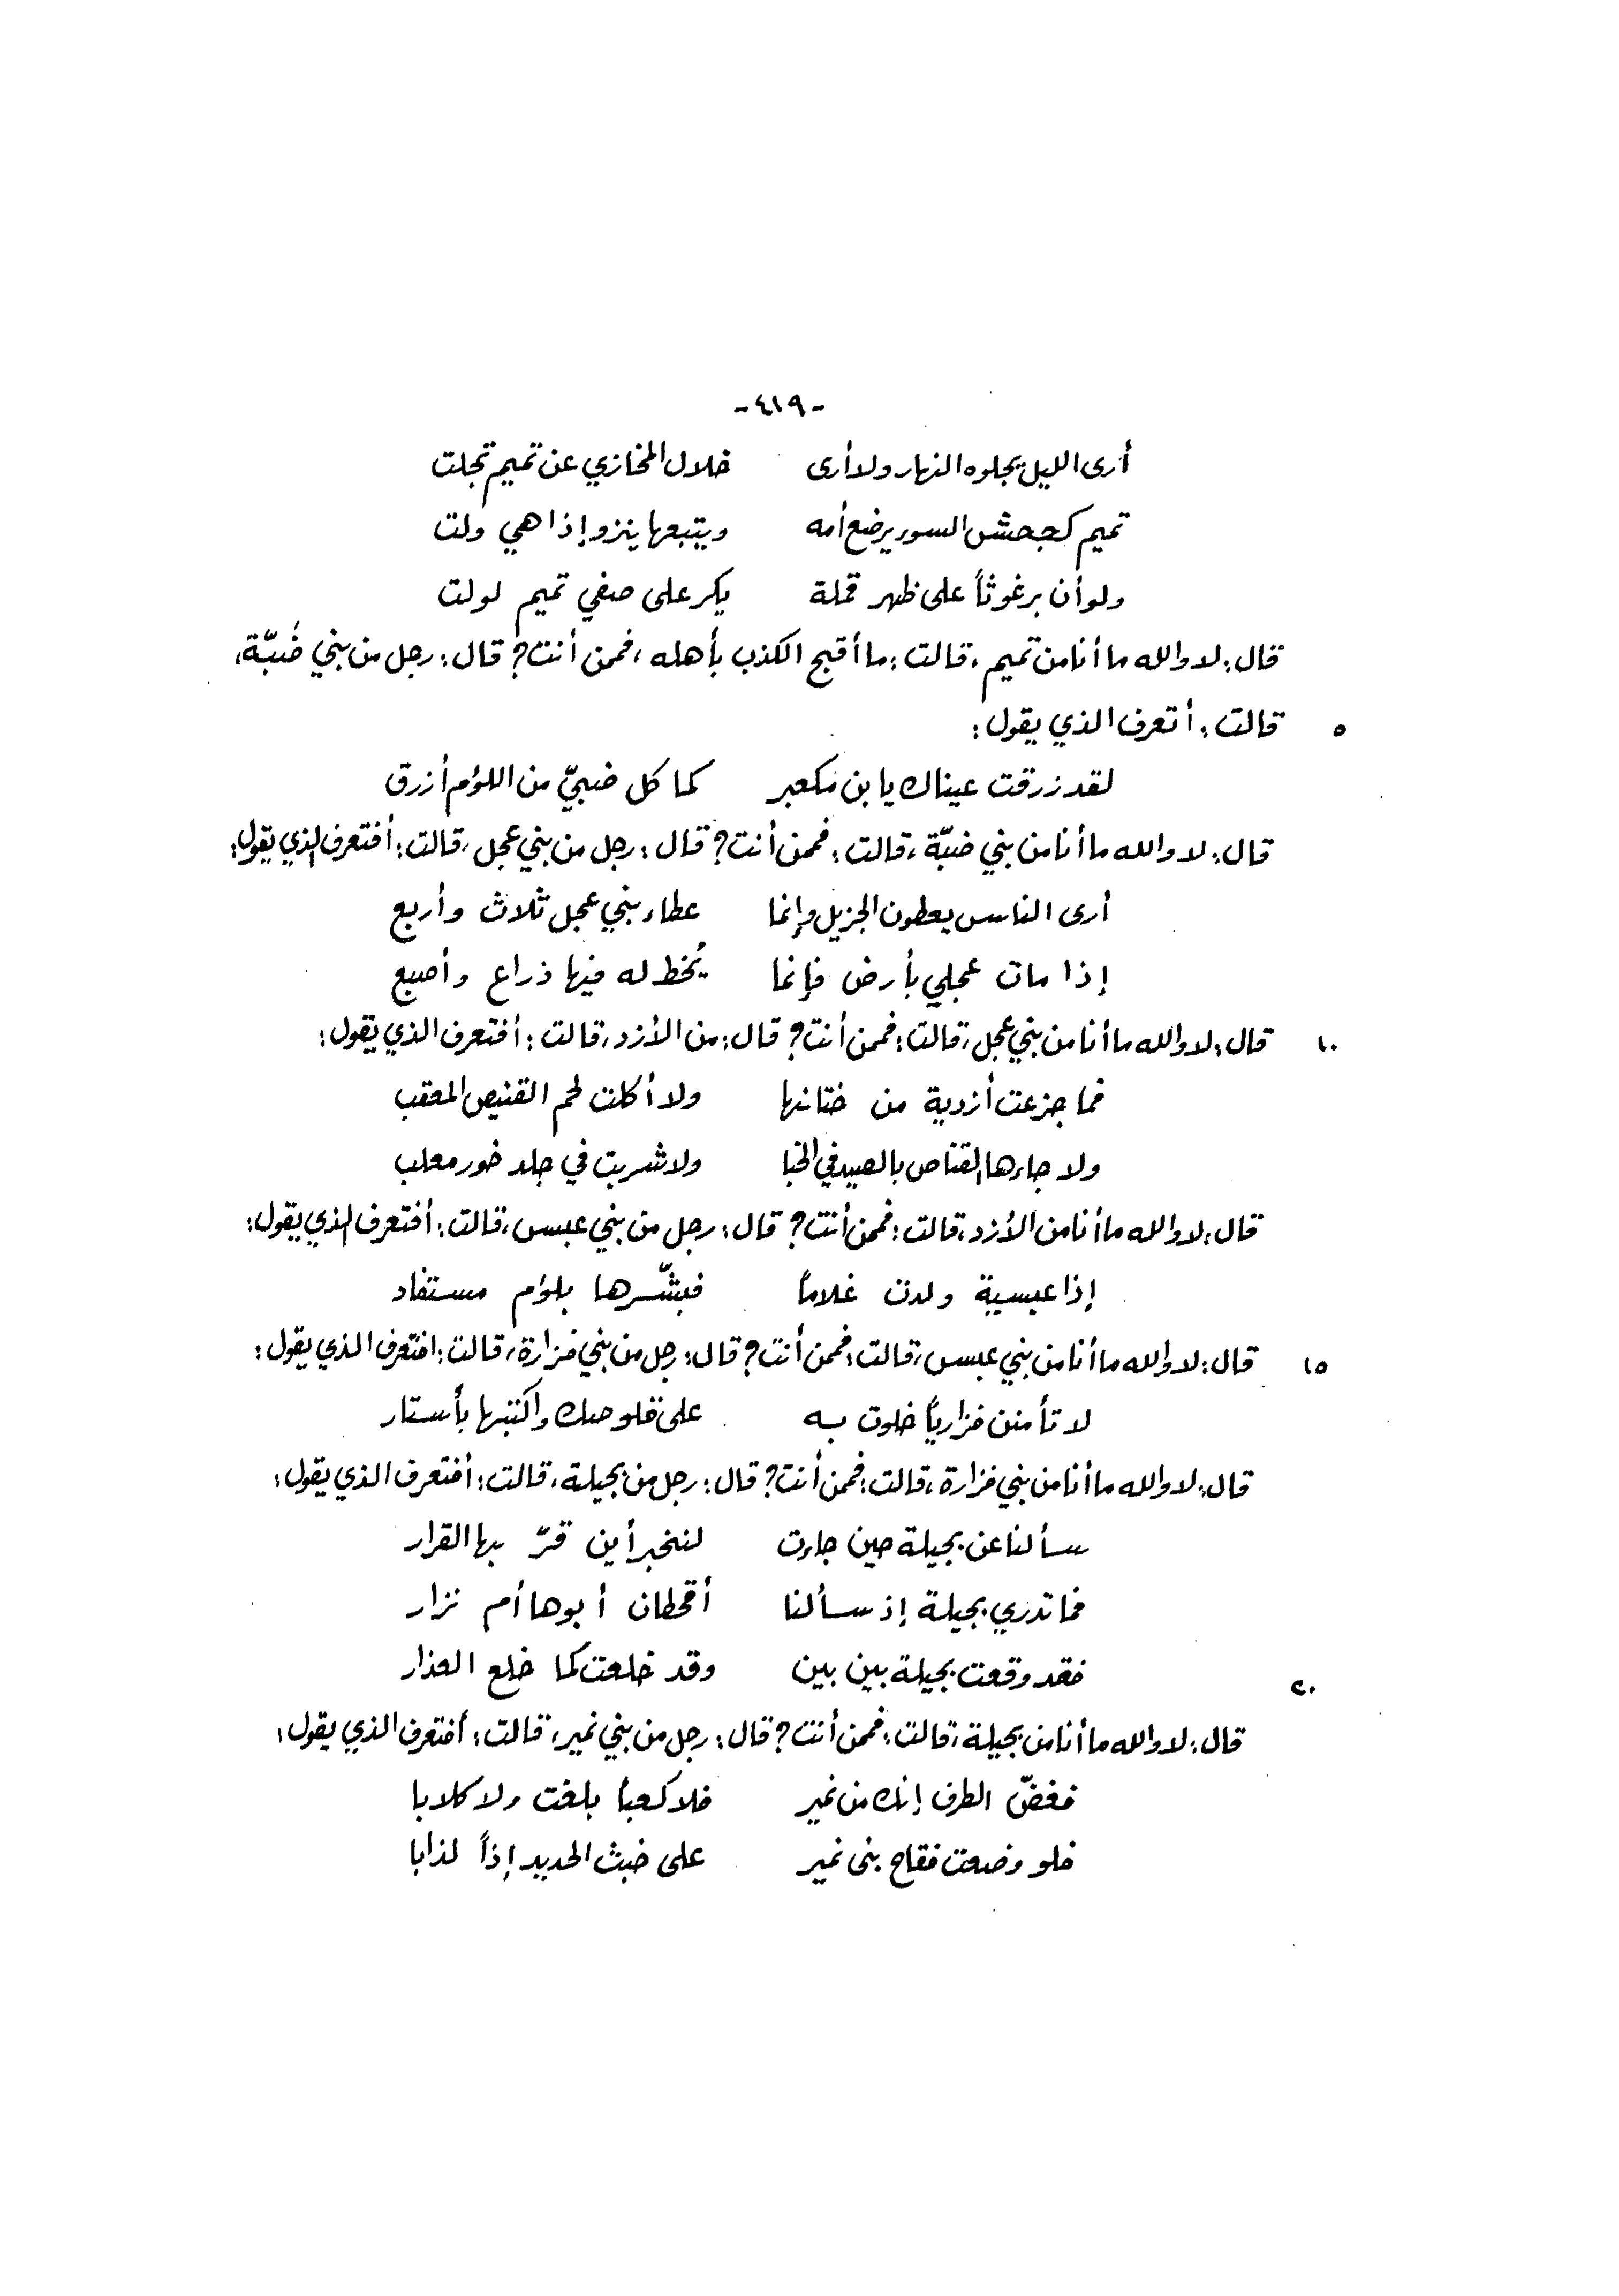 -٤١٩-
أرى الليل يجلوه النهار ولا أرى خلال المخازي عن تميم تجلت
تميم كجحش السوء يرضع أمه ويتبعها ينزو إذا هي ولت
ولو أن برغوثاً على ظهر قملة يكر على صفي تميم لولت
قال: لا والله ما أنا من تميم، قالت: ما أقبح الكذب بأهله، فممن أنت؟ قال: رجل من بني ضَبّة،
٥ قالت: أتعرف الذي يقول:
لقد زرقت عيناك يا بن مكعبر كما كل ضبيّ من اللؤم أزرق
قال: لا والله ما أنا من بني ضبّة، قالت: فممن أنت؟ قال: رجل من بني عجل، قالت: أفتعرف الذي يقول:
أرى الناس يعطون الجزيل وإنما عطاء بني عجل ثلاث وأربع
إذا مات عجلي بأرض فإنما يُخط له فيها ذراع وأصبع
١٠ قال: لا والله ما أنا من بني عجل، قالت: فممن أنت؟ قال: من الأزد، قالت: أفتعرف الذي يقول:
فما جزعت أزدية من ختانها ولا أكلت لحم القنيص المعقب
ولا جاءها القناص بالصيد في الخبا ولا شربت في جلد خور معلب
قال: لا والله ما أنا من الأزد، قالت: فممن أنت؟ قال: رجل من بني عبس، قالت: أفتعرف الذي يقول:
إذا عبسية ولدت غلاماً فبشّرها بلؤم مستفاد
١٥ قال: لا والله ما أنا من بني عبس، قالت: فممن أنت؟ قال: رجل من بني فزارة، قالت: افتعرف الذي يقول:
لا تأمنن فزارياً خلوت به على قلوصك واكتبها بأستار
قال: لا والله ما أنا من بني فزارة، قالت: فممن أنت؟ قال: رجل من بجيلة، قالت: أفتعرف الذي يقول:
سألنا عن بجيلة حين جاءت لنخبر أين قرّ بها القرار
فما تدري بجيلة إذ سألنا أقحطان أبوها أم نزار
٢٠ فقد وقعت بجيلة بين بين وقد خلعت كما خلع العذار
قال: لا والله ما أنا من بجيلة، قالت: فممن أنت؟ قال: رجل من بني نمير، قالت: أفتعرف الذي يقول:
فغضّ الطرف إنك من نمير فلا كعباً بلغت ولا كلابا
فلو وضعت فقاح بنى نمير على خبث الحديد إذاً لذابا